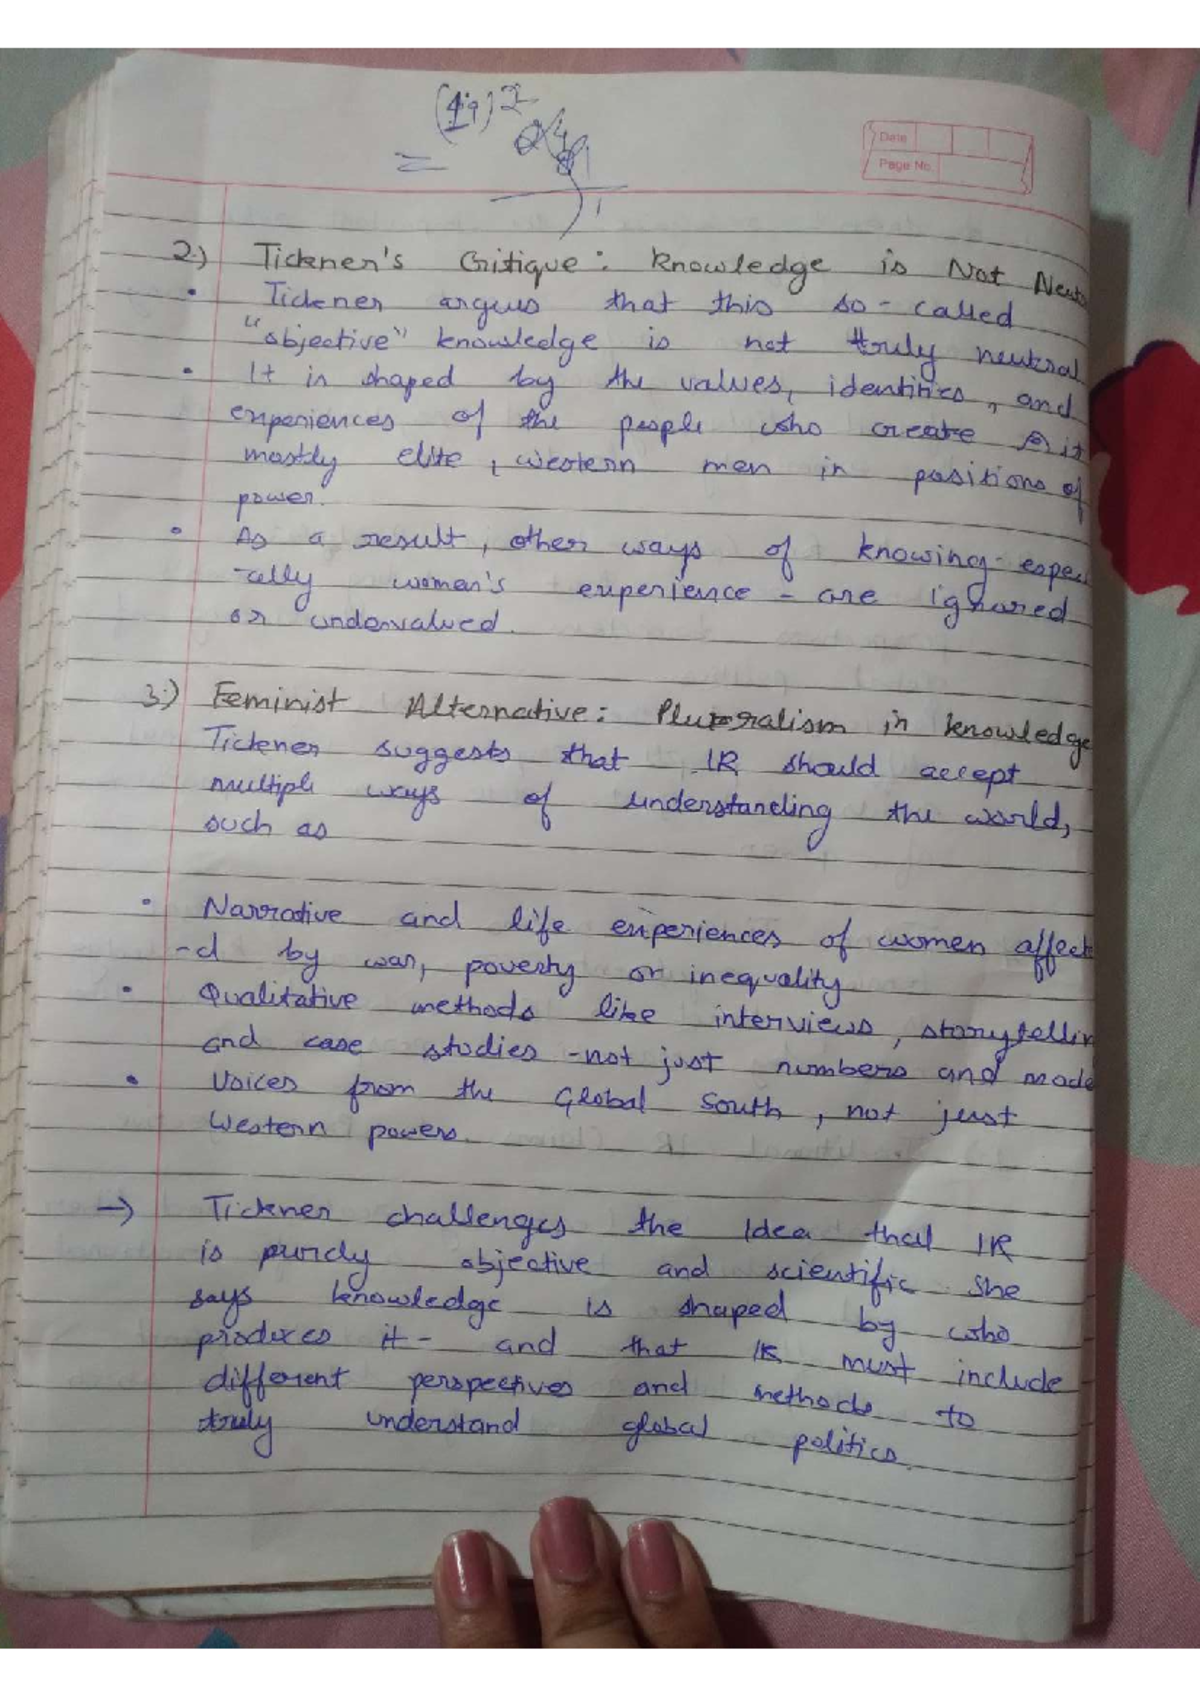 (19)2
=
Date
Page No.
2.) Tickner's Critique: Knowledge is Not Neut
• Tickner argues that this so-called
"objective" knowledge is not truly neutral.
• It is shaped by the values, identities, and
experiences of the people who create it
mostly elite, western men in positions of
power.
• As a result, other ways of knowing- espec
-ally women's experience - are ignored
or undervalued.
3.) Feminist Alternative: Pluralism in knowledge
Tickner suggests that IR should accept
multiple ways of understanding the world,
such as
• Narrative and life experiences of women affect
-d by war, poverty or inequality
• Qualitative methods like interviews, storytellin
and case studies -not just numbers and mode
• Voices from the Global South, not just
Western powers.
→ Tickner challenges the Idea that IR
is purely objective and scientific She
says knowledge is shaped by who
produces it - and that IR must include
different perspectives and methods to
truly understand global politics.